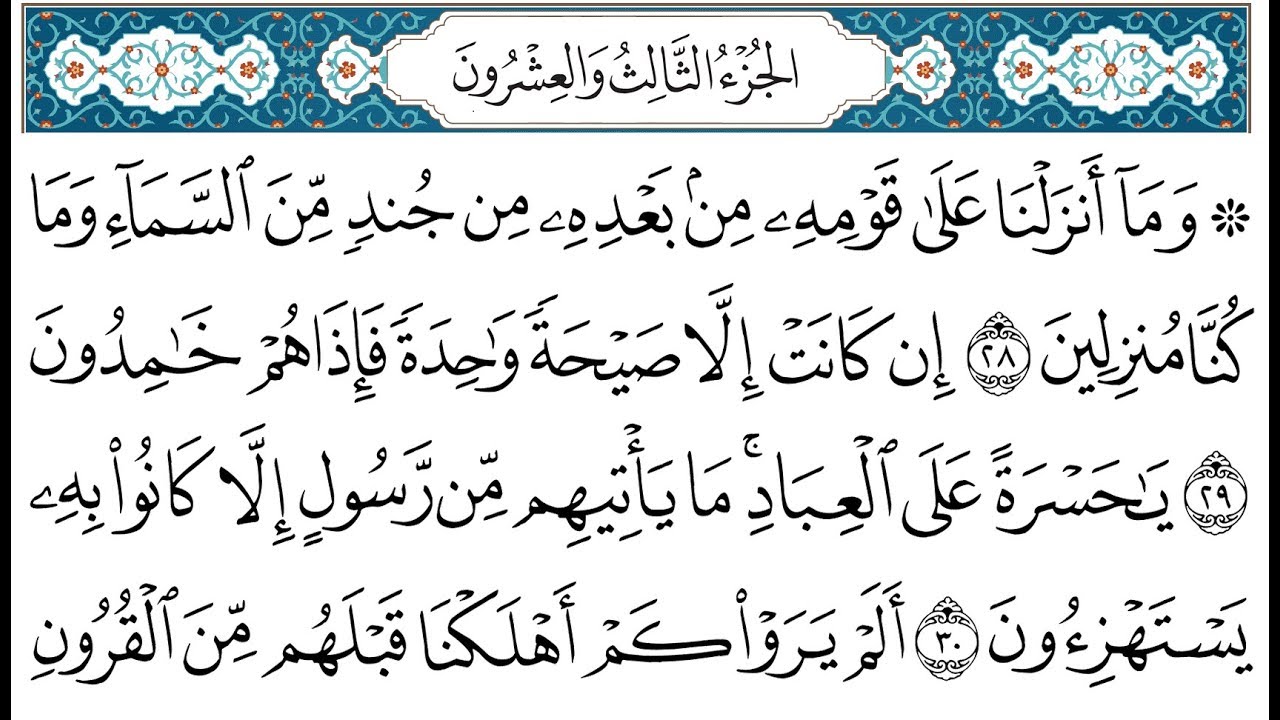 الجُزْءُ الثَّالِثُ وَالعِشْرُونَ
۞ وَمَآ أَنزَلْنَا عَلَىٰ قَوْمِهِۦ مِنۢ بَعْدِهِۦ مِن جُندٍ مِّنَ ٱلسَّمَآءِ وَمَا
كُنَّا مُنزِلِينَ ٢٨ إِن كَانَتْ إِلَّا صَيْحَةً وَٰحِدَةً فَإِذَا هُمْ خَٰمِدُونَ
٢٩ يَٰحَسْرَةً عَلَى ٱلْعِبَادِ ۚ مَا يَأْتِيهِم مِّن رَّسُولٍ إِلَّا كَانُوا۟ بِهِۦ
يَسْتَهْزِءُونَ ٣٠ أَلَمْ يَرَوْا۟ كَمْ أَهْلَكْنَا قَبْلَهُم مِّنَ ٱلْقُرُونِ